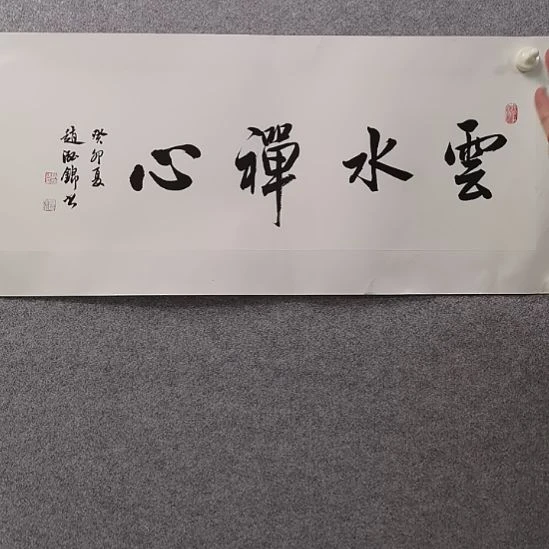 雲水禪心
癸卯夏
趙泓錦书